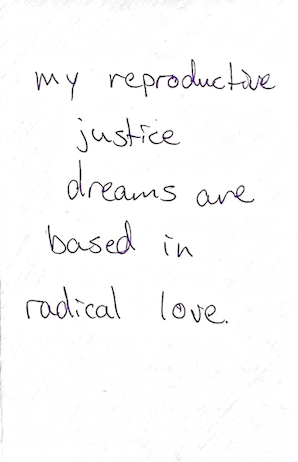 my reproductive
justice
dreams are
based in
radical love.